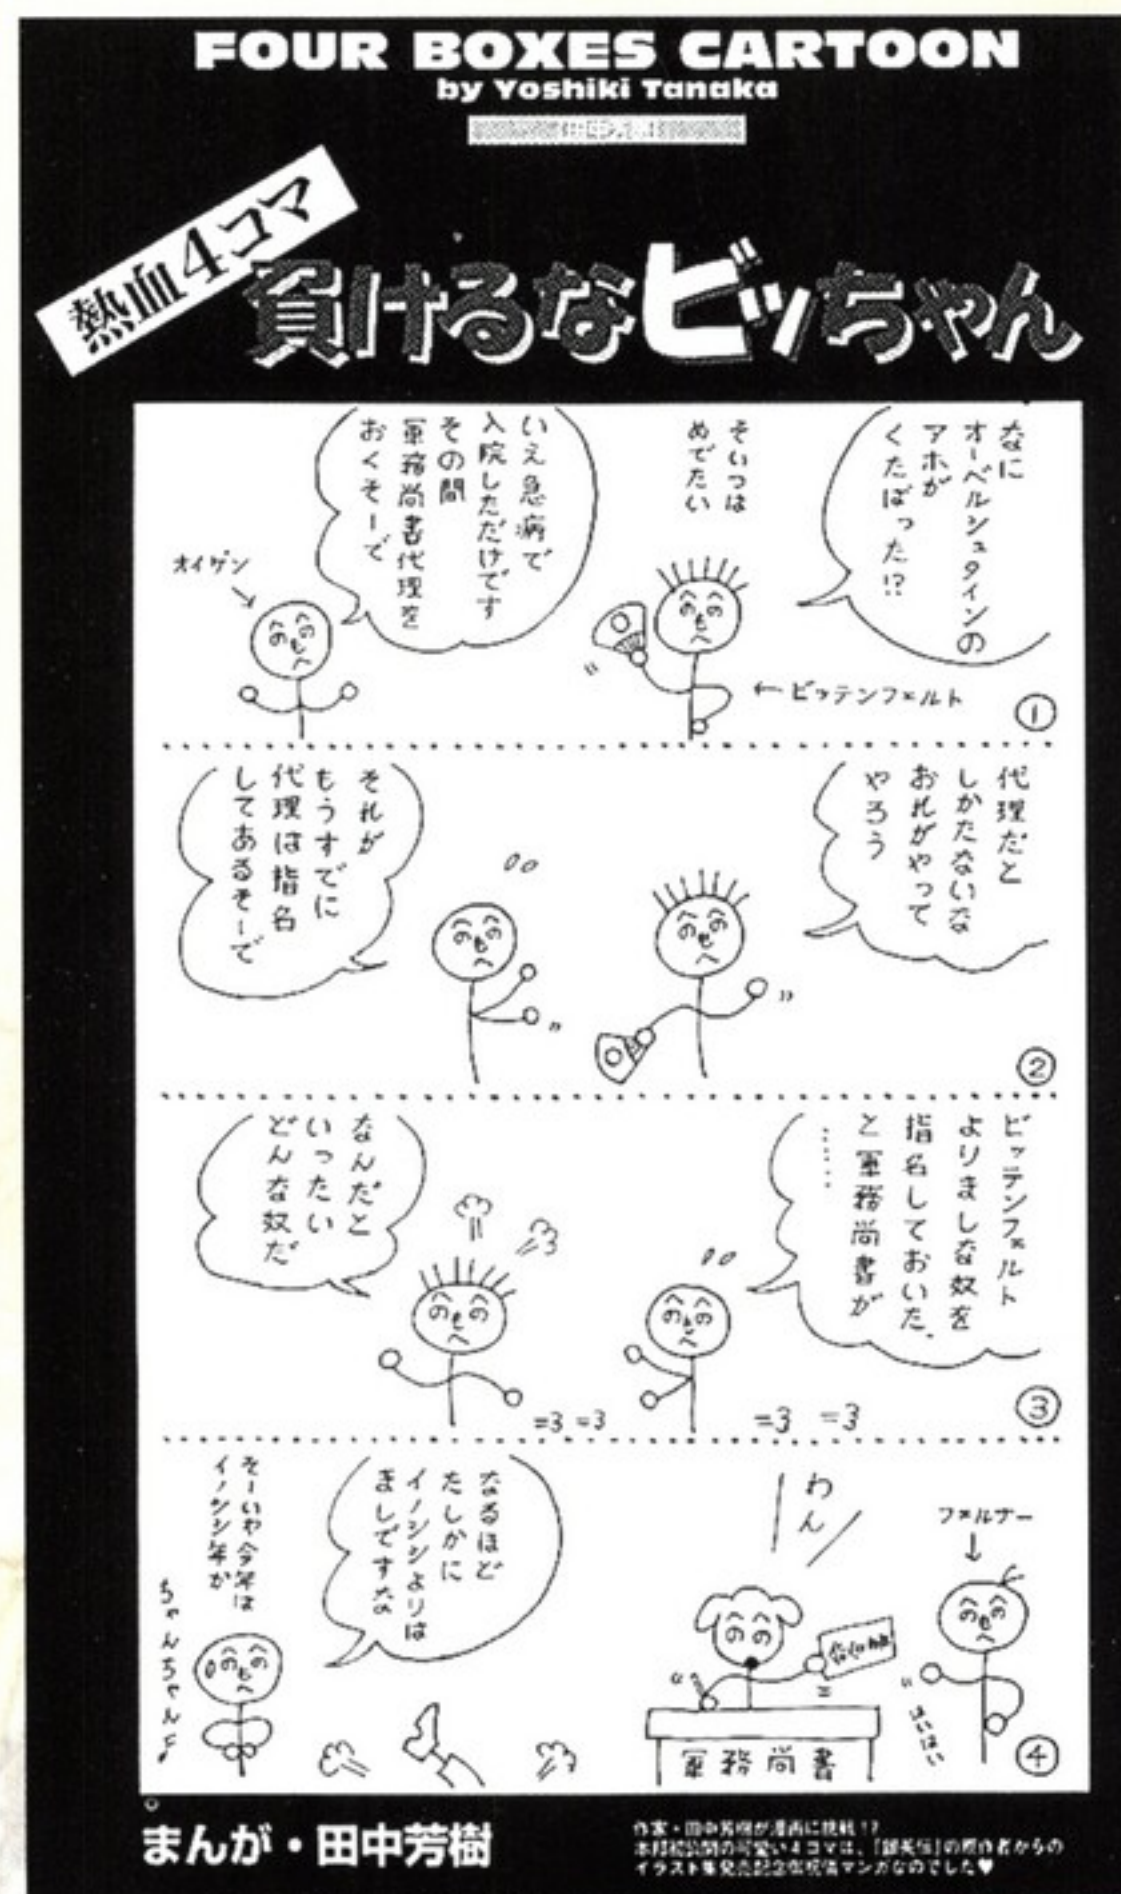 FOUR BOXES CARTOON
by Yoshiki Tanaka
熱血4コマ
負けるなビッちゃん
なに
オーベルシュタインの
アホが
くたばった!?
そいつは
めでたい
←ビッテンフェルト
いえ急病で
入院しただけです
その間
軍務尚書代理を
おくそーで
オイゲン
①
代理だと
しかたないな
おれがやって
やろう
それが
もうすでに
代理は指名
してあるそーで
②
ビッテンフェルト
よりましな奴を
指名しておいた、
と軍務尚書が
……
なんだと
いったい
どんな奴だ
③
フェルナー
わん
はいはい
軍務尚書
なるほど
たしかに
イノシシよりは
ましですな
そーいや今年は
イノシシ年か
ちゃんちゃん♪
④
まんが・田中芳樹
作家・田中芳樹が漫画に挑戦!?
本邦初公開の可愛い4コマは、「銀英伝」の原作者からの
イラスト集発売記念御祝儀マンガなのでした♥